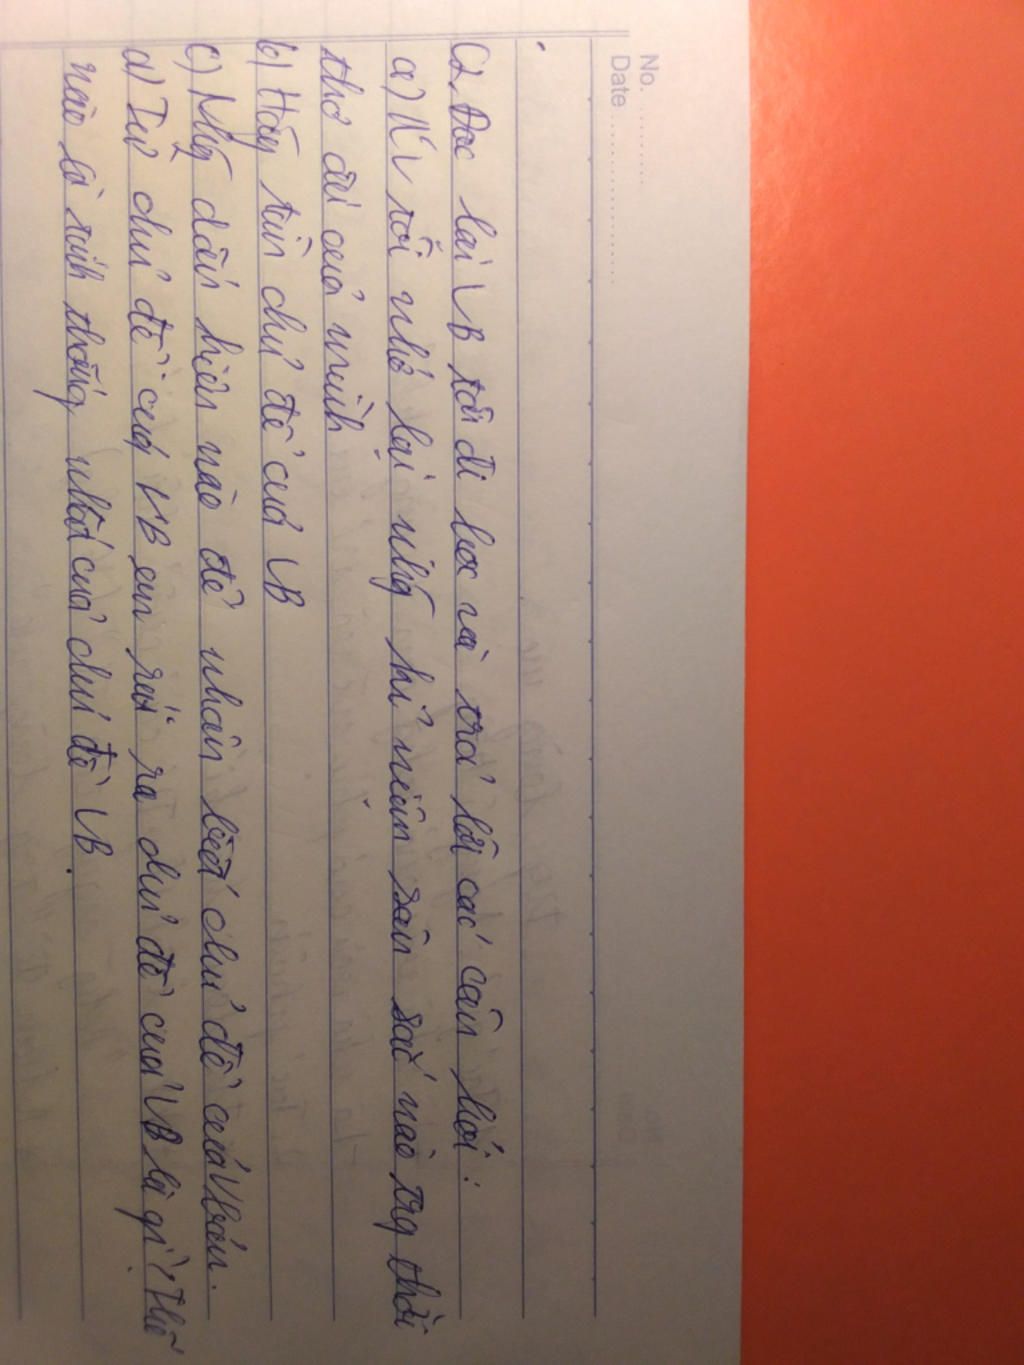 No. ............
Date ........................
C2. Đọc lại VB tôi đi học và trả lời các câu hỏi:
a) N/V tôi nhớ lại nhg kỉ niệm sâu sắc nào trg thời
thơ ấu của mình
b) Hãy tìm chủ đề của VB
c) Nhg dấu hiệu nào để nhận biết chủ đề của Vbản.
d) Từ chủ đề của VB em rút ra chủ đề của VB là gì? Thế
nào là tính thống nhất của chủ đề VB.